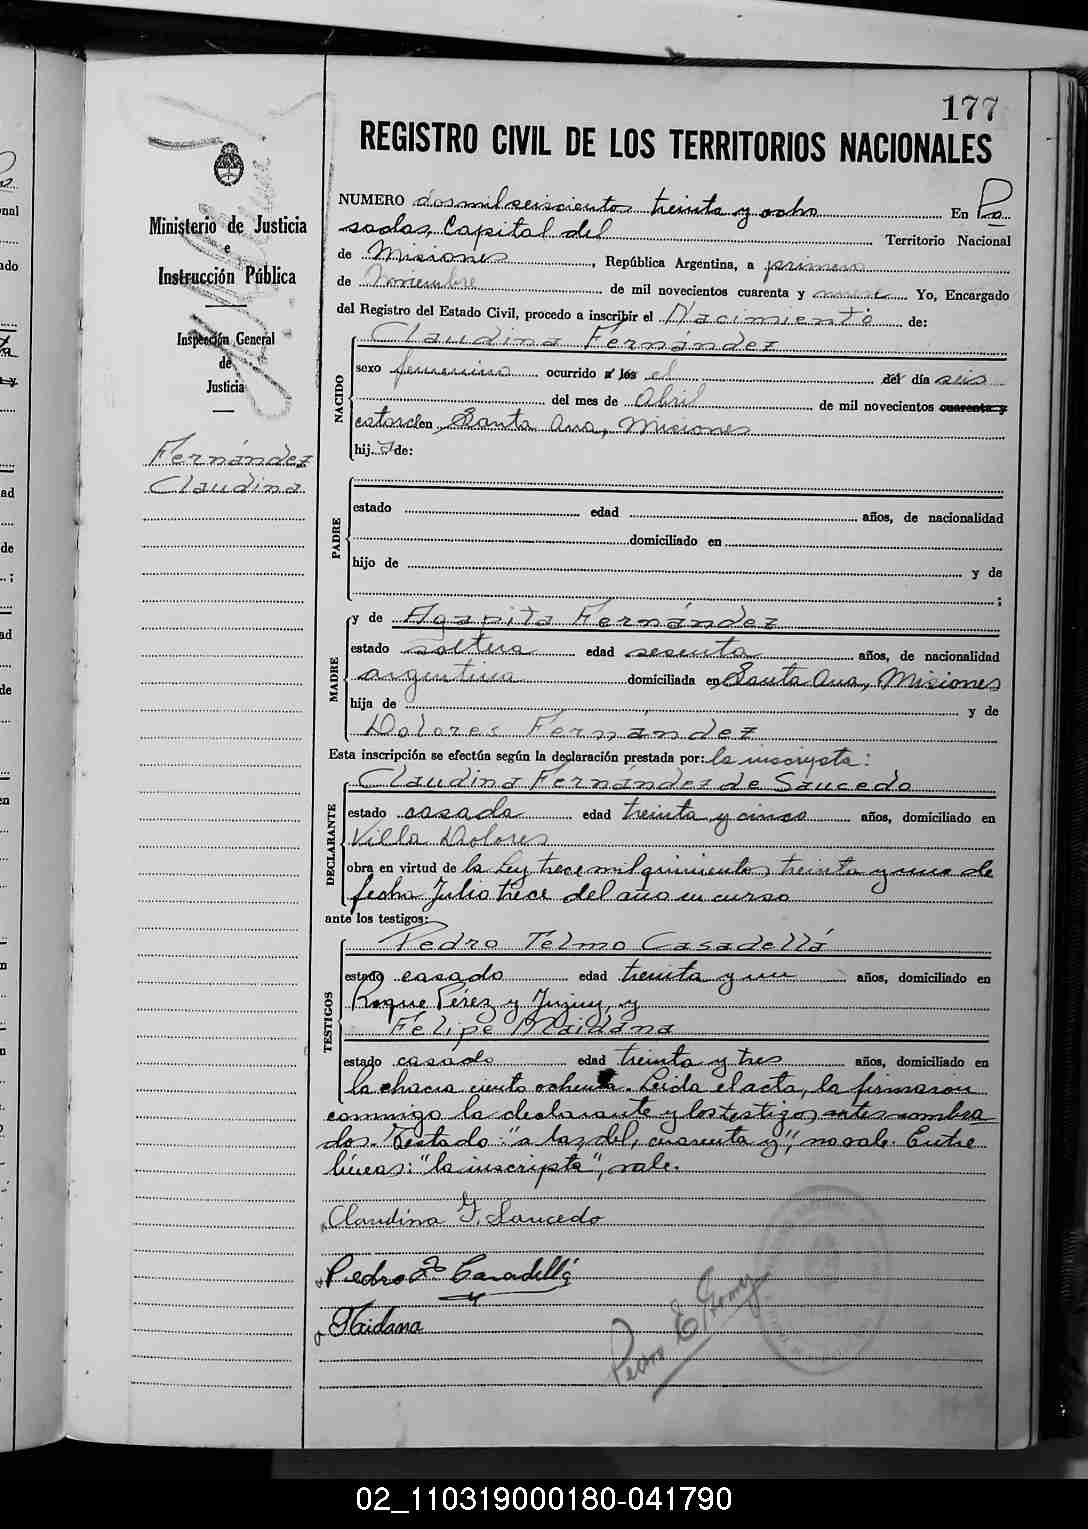 177
REGISTRO CIVIL DE LOS TERRITORIOS NACIONALES
Ministerio de Justicia
e
Instrucción Pública
Inspección General
de
Justicia
Fernández
Claudina
NUMERO dos mil seiscientos treinta y ocho En Po
sadas, Capital del Territorio Nacional
de Misiones, República Argentina, a primero
de Noviembre de mil novecientos cuarenta y nueve Yo, Encargado
del Registro del Estado Civil, procedo a inscribir el Nacimiento de:
NACIDO
Claudina Fernández
sexo femenino ocurrido a las el del día seis
del mes de Abril de mil novecientos cuarenta y
catorce en Santa Ana, Misiones
hija de:
PADRE
estado edad años, de nacionalidad
domiciliado en
hijo de y de
;
MADRE
y de Agapita Fernández
estado soltera edad sesenta años, de nacionalidad
argentina domiciliada en Santa Ana, Misiones
hija de y de
Dolores Fernández
Esta inscripción se efectúa según la declaración prestada por: la inscripta:
DECLARANTE
Claudina Fernández de Saucedo
estado casada edad treinta y cinco años, domiciliado en
Villa Dolores
obra en virtud de la Ley trece mil quinientos treinta y uno de
fecha Julio trece del año en curso
ante los testigos:
TESTIGOS
Pedro Telmo Casadellá
estado casado edad treinta y un años, domiciliado en
Roque Pérez y Jujuy, y
Felipe Maidana
estado casado edad treinta y tres años, domiciliado en
la chacra ciento ochenta. Leida el acta, la firmaron
conmigo la declarante y los testigos antes nombra
dos. Testado: "a las, del, cuarenta y", no vale. Entre
líneas: "la inscripta", vale.
Claudina F. Saucedo
Pedro T. Casadellá
Maidana
Pedro E
02_110319000180-041790